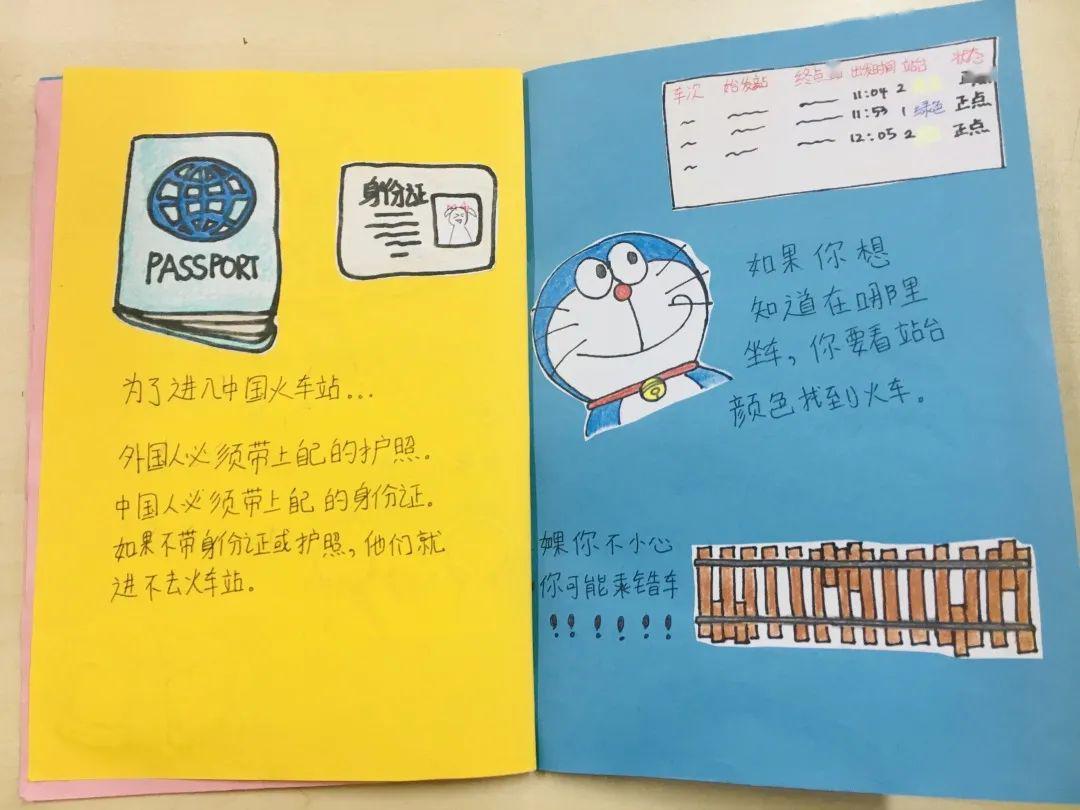 PASSPORT
身份证
为了进入中国火车站...
外国人必须带上自己的护照。
中国人必须带上自己的身份证。
如果不带身份证或护照,他们就
进不去火车站。
车次 始发站 终点 出发时间 站台 状态
11:04 2 正点
11:53 1 绿色 正点
12:05 2 正点
如果你想
知道在哪里
坐车,你要看站台
颜色找到火车。
如果你不小心
你可能乘错车
!!!!!!